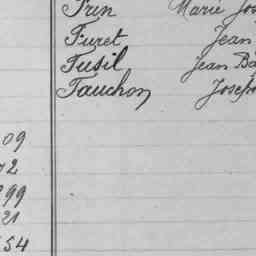 Marie Jos
Furet Jean
Fusil Jean Ba
Fauchon Joseph
09
72
99
21
54